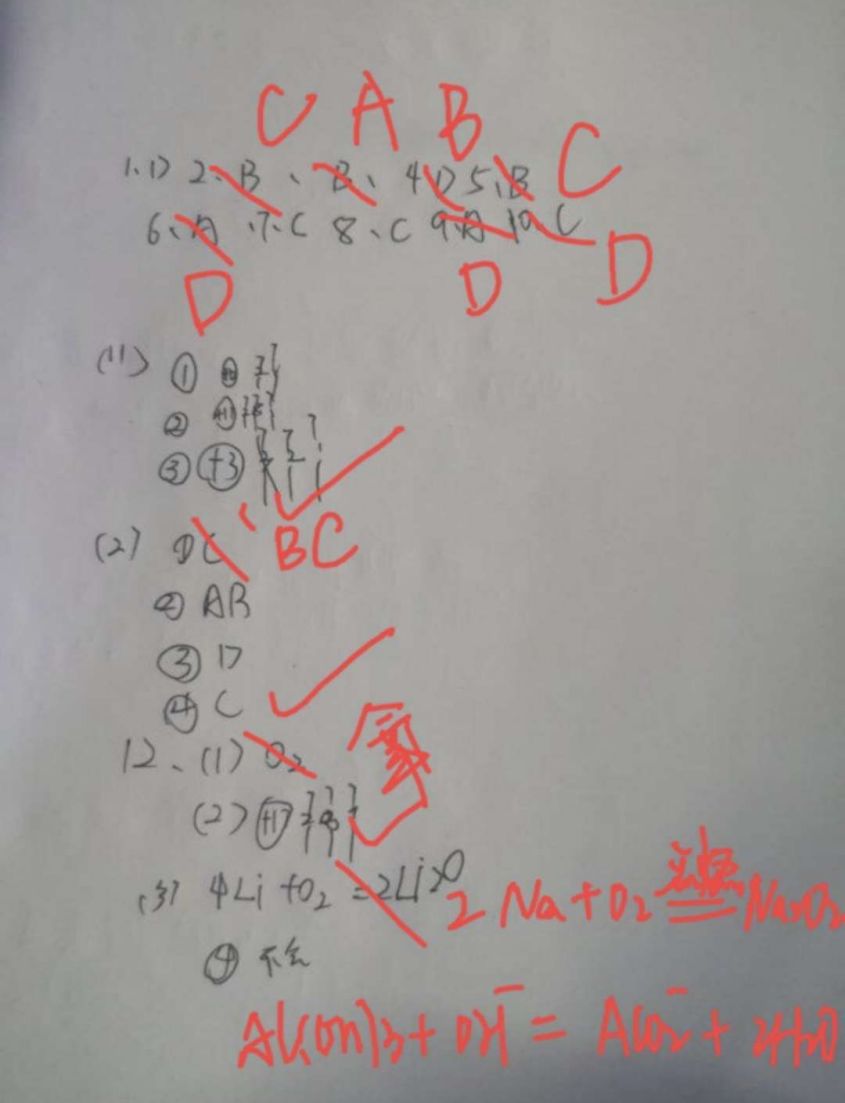 C A B
1、D 2、B 、 B、 4 D 5、B C
6、A 、7、C 8、C 9、A 10、C
D D D
(11) ①
②
③ +3
(2) ① C BC
② AB
③ D
④ C
12、(1) O₂
(2) +17 2 8 7
(3) 4Li + O₂ = 2Li₂O 2Na + O₂ 点燃 Na₂O₂
④ 不会
Al(OH)3 + OH⁻ = AlO₂⁻ + 2H₂O